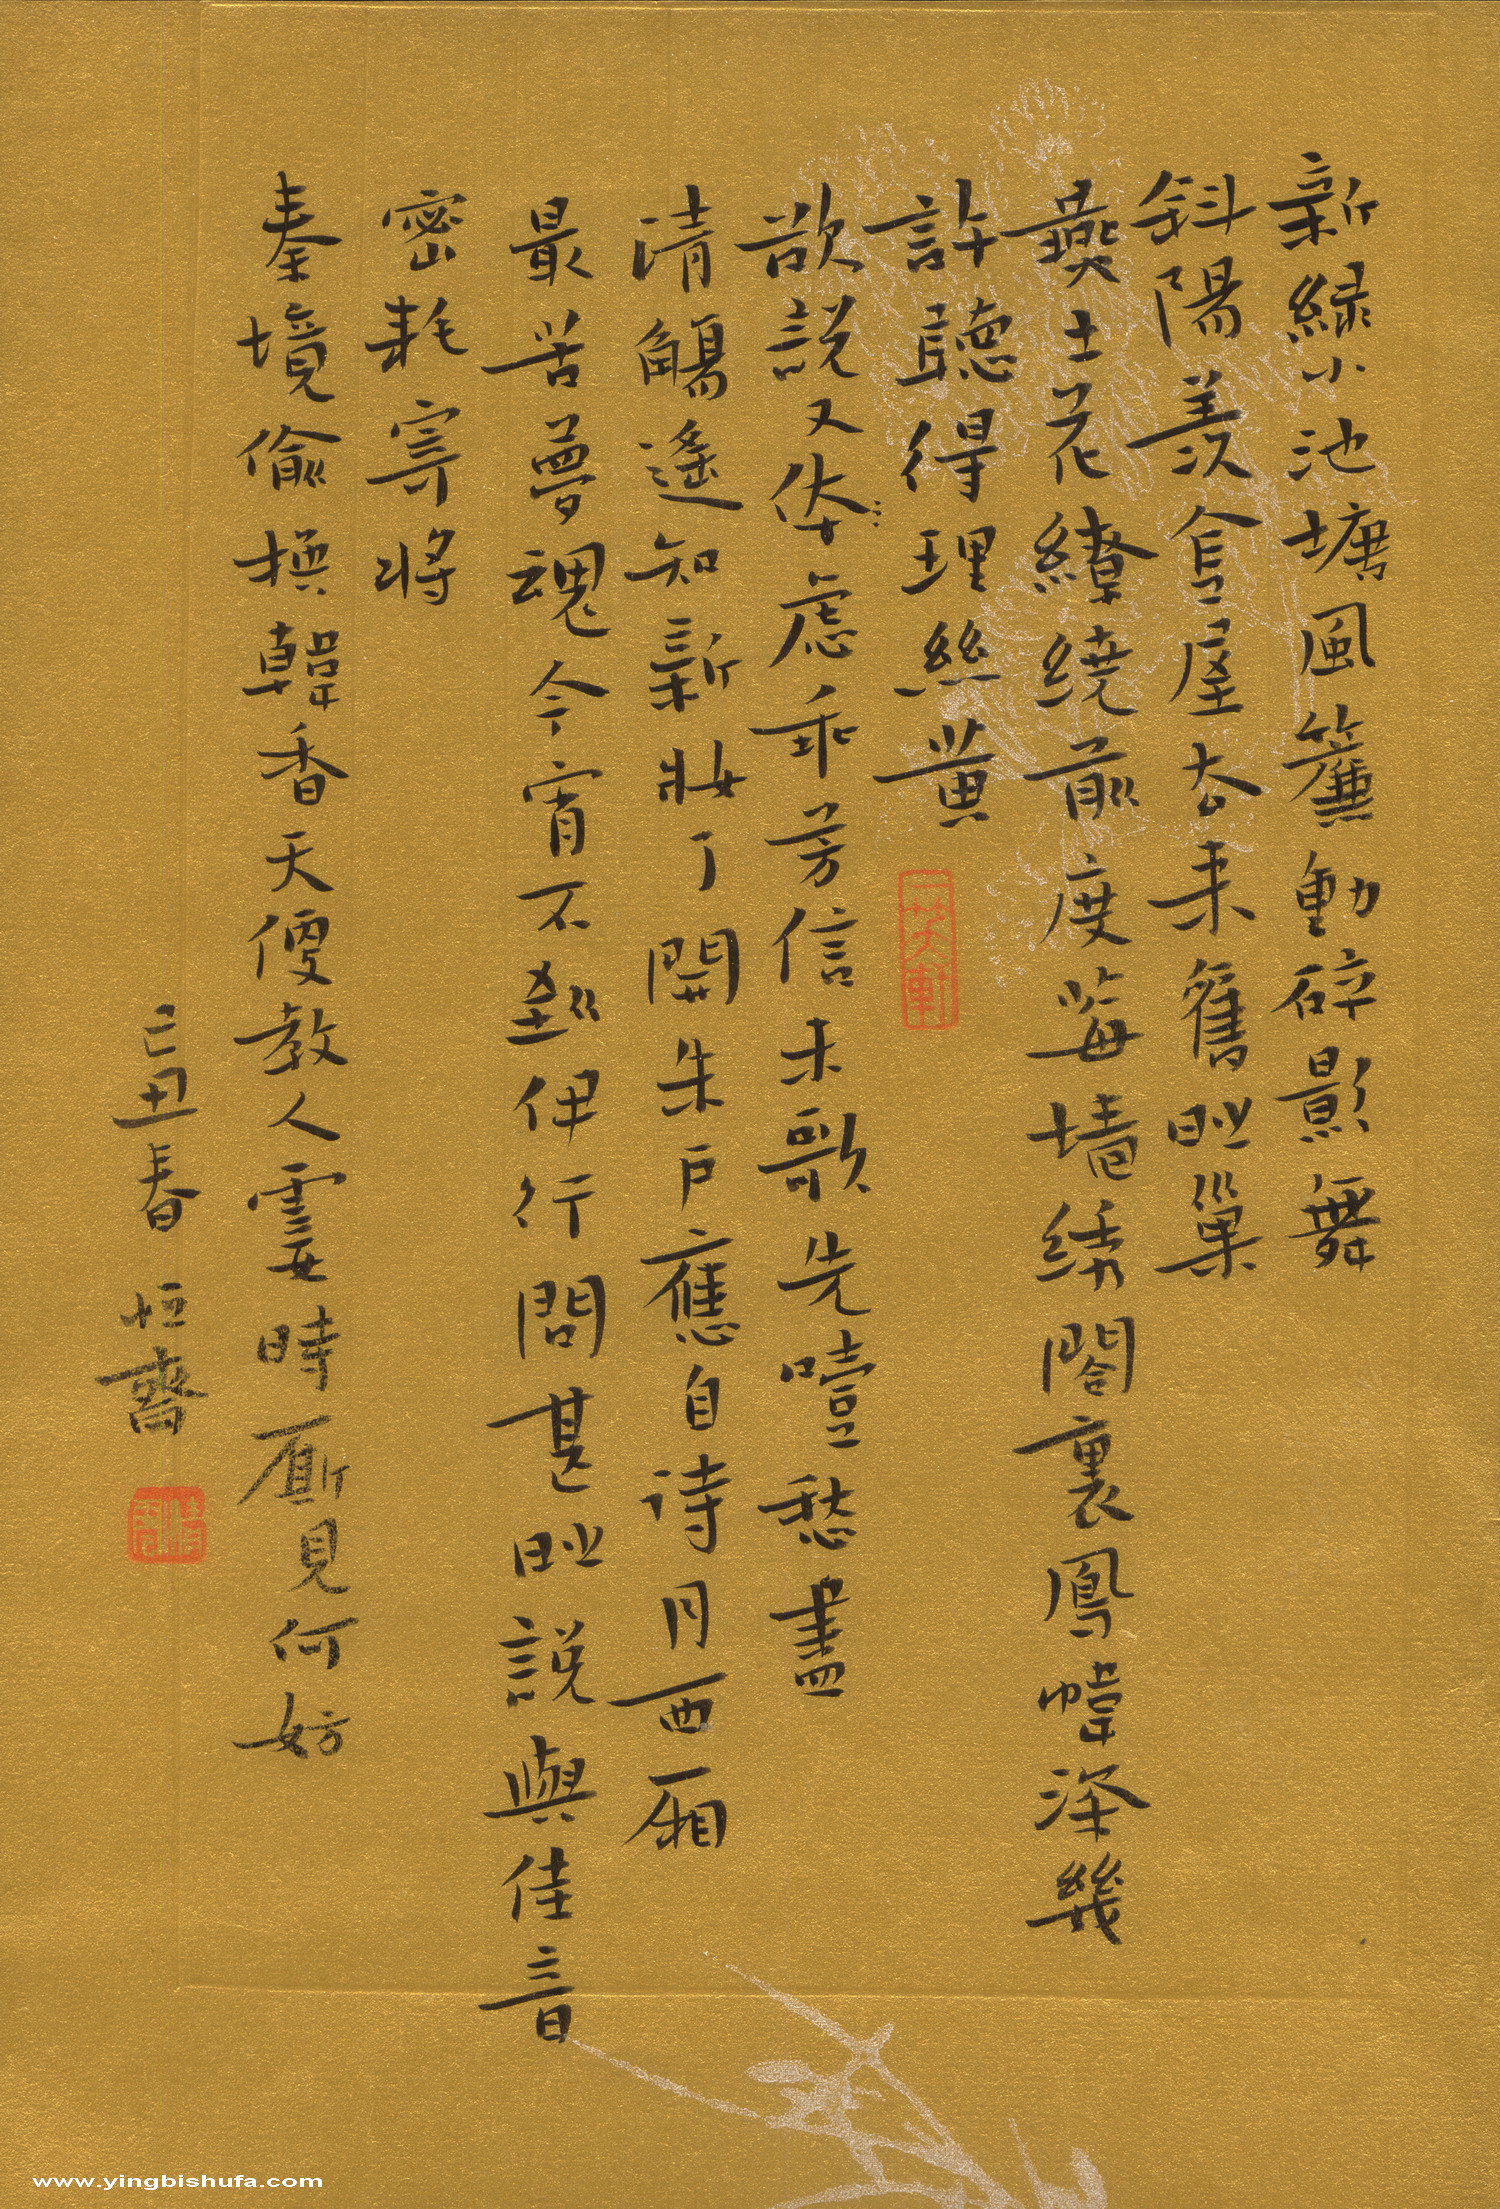 新綠小池塘風簾動碎影舞
斜陽羨金屋去來舊時巢
燕土花繚繞前度莓墙綉閣裏鳳幃深幾
許聽得理絲黄
欲説又休慮乖芳信未歌先噎愁盡
清觴遥知新妝了開朱户應自待月西厢
最苦夢魂今宵不到伊行問甚時説與佳音
密耗寄將
秦境偷换韓香天便教人霎時厮見何妨
己丑春 恒齋
www.yingbishufa.com